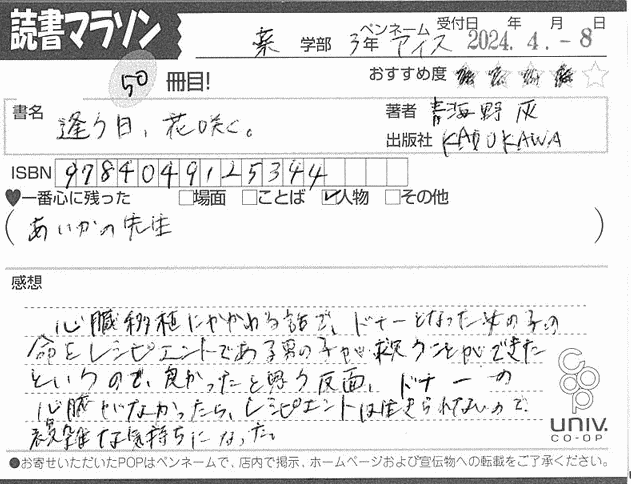 読書マラソン
薬 学部 3年 ペンネーム アイス 受付日 年 月 日
2024. 4. -8
50 冊目!
おすすめ度 ★★★★☆
書名 逢う日、花咲く。
著者 青海野 灰
出版社 KADOKAWA
ISBN 9784049125344
♥一番心に残った □場面 □ことば ☑人物 □その他
(あいかの先生)
感想
心臓移植にかかわる話で、ドナーとなった女の子の
命をレシピエントである男の子が救うことができた
というので、良かったと思う反面、ドナーの
心臓がなかったら、レシピエントは生きられないので
複雑な気持ちになった。
Coop
UNIV.
CO-OP
●お寄せいただいたPOPはペンネームで、店内で掲示、ホームページおよび宣伝物への転載をご了承ください。